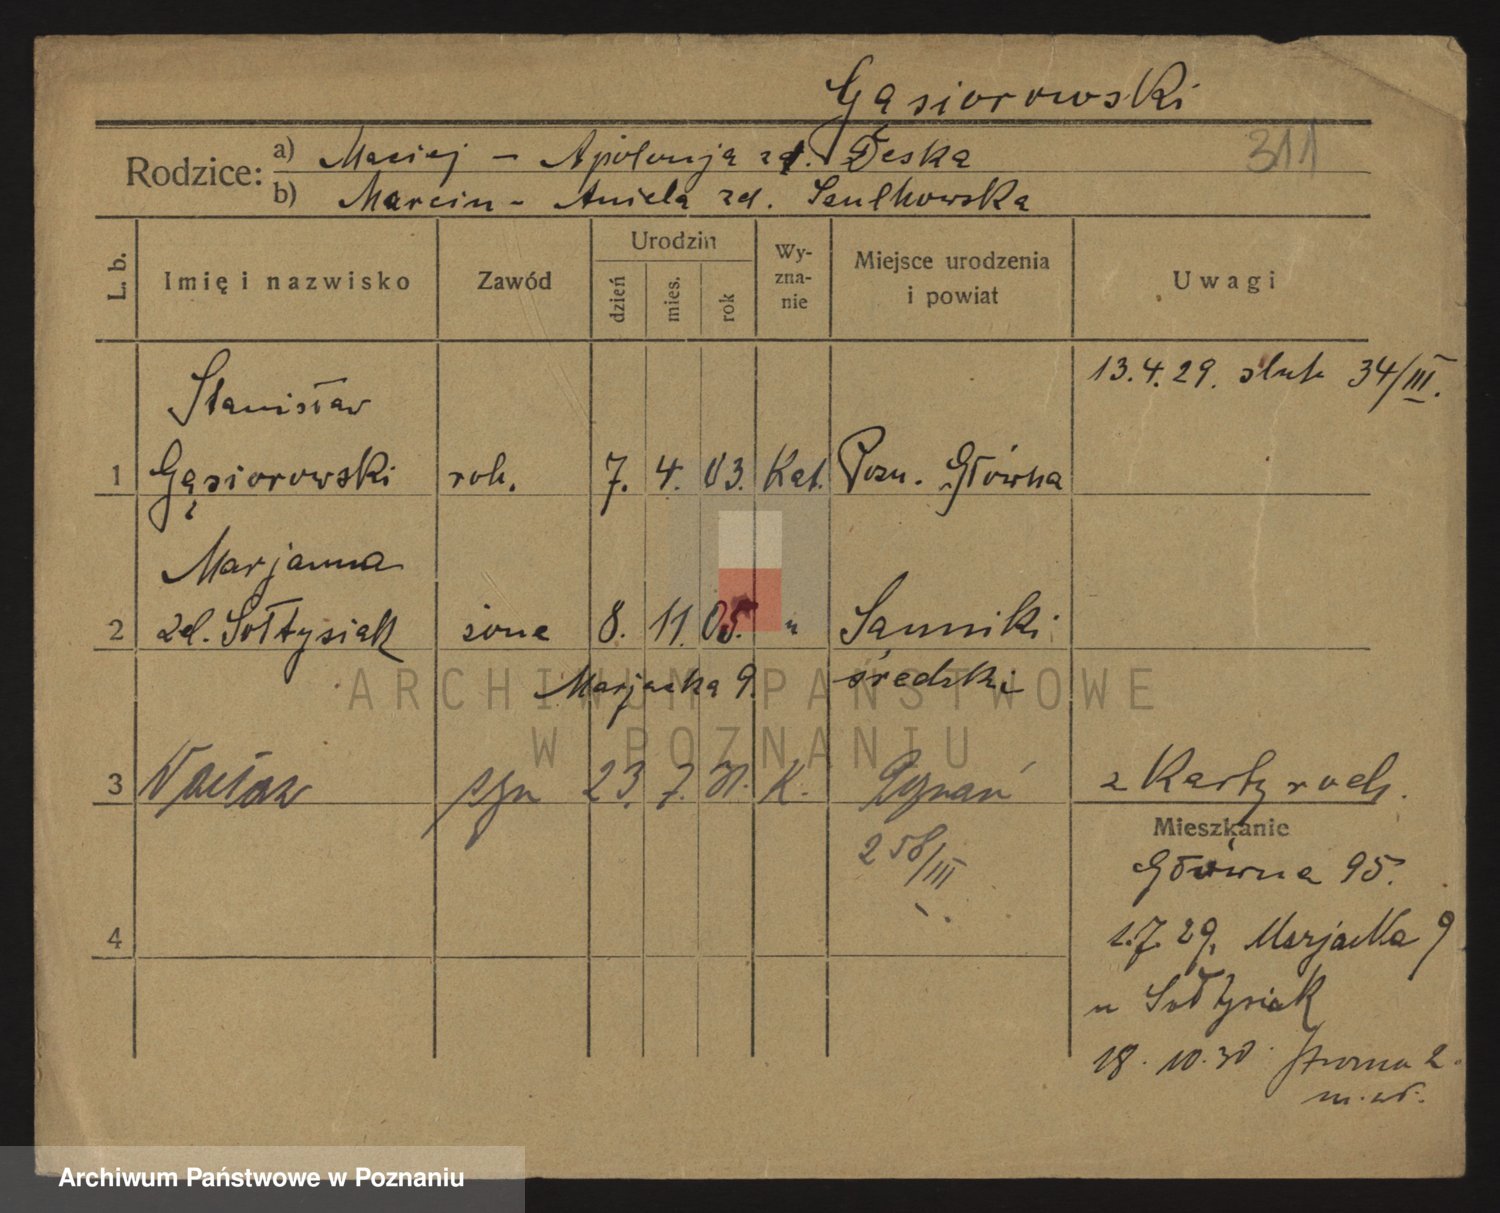 Gąsiorowski
311
Rodzice: a) Maciej – Apolonja zd. Deska
b) Marcin – Aniela zd. Szulkowska
L. b.
Imię i nazwisko
Zawód
Urodzin
dzień
mies.
rok
Wy-
zna-
nie
Miejsce urodzenia
i powiat
Uwagi
13. 4. 29. slub 34/III.
Stanisław
1 Gąsiorowski rob. 7. 4. 03. Kat. Pozn. Główna
Marjanna
2 zd. Sołtysiak żona 8. 11. 05. " Sanniki
Marjacka 9. średzki
3 Wacław syn 23. 7. 31. K. Poznań z Karty rodz.
258/III
Mieszkanie
Główna 95.
4
1. 7. 29. Marjacka 9
u Sołtysiak
18. 10. 30. 2
m. wł.
ARCHIWUM PAŃSTWOWE
W POZNANIU
Archiwum Państwowe w Poznaniu